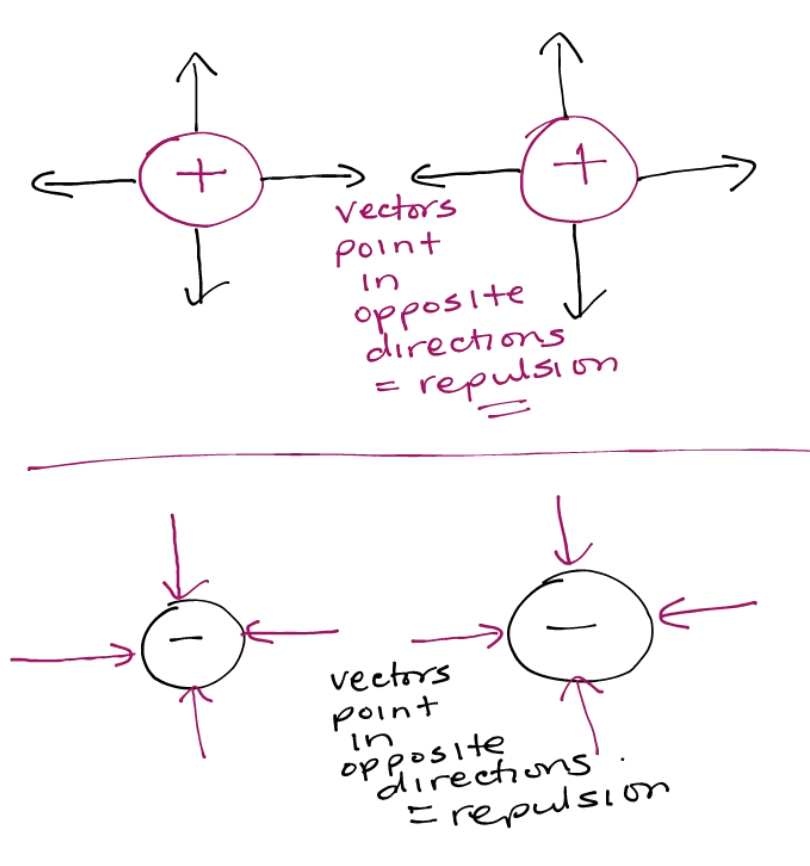 +
+
vectors
point
in
opposite
directions
= repulsion
-
-
vectors
point
in
opposite
directions.
= repulsion